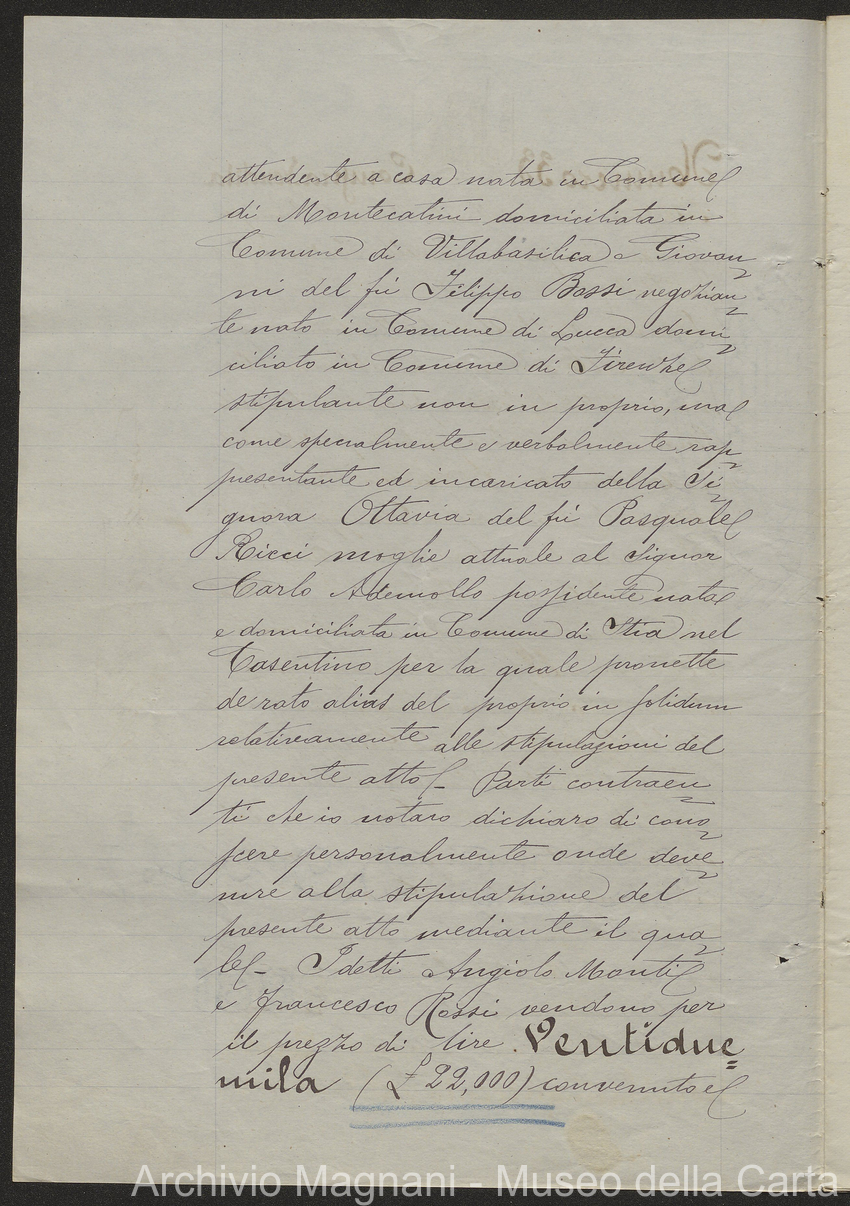 attendente a casa nata in Comune
di Montecatini domiciliata in
Comune di Villabasilica e Giovan=
ni del fù Filippo Bossi negozian=
te nato in Comune di Lucca domi=
ciliato in Comune di Firenze
stipulante non in proprio, ma
come specialmente e verbalmente rap=
presentante ed incaricato della Si=
gnora Ottavia del fù Pasquale
Ricci moglie attuale al Signor
Carlo Ademollo possidente nata
e domiciliata in Comune di Stia nel
Casentino per la quale promette
de rato alias del proprio in solidum
relativamente alle stipulazioni del
presente atto - Parti contraen=
ti che io notaro dichiaro di cono=
scere personalmente onde deve=
nire alla stipulazione del
presente atto mediante il qua=
le - I detti Angiolo Monti
e Francesco Rossi vendono per
il prezzo di lire Ventidue=
mila (£ 22,000) convenuto e
Archivio Magnani - Museo della Carta